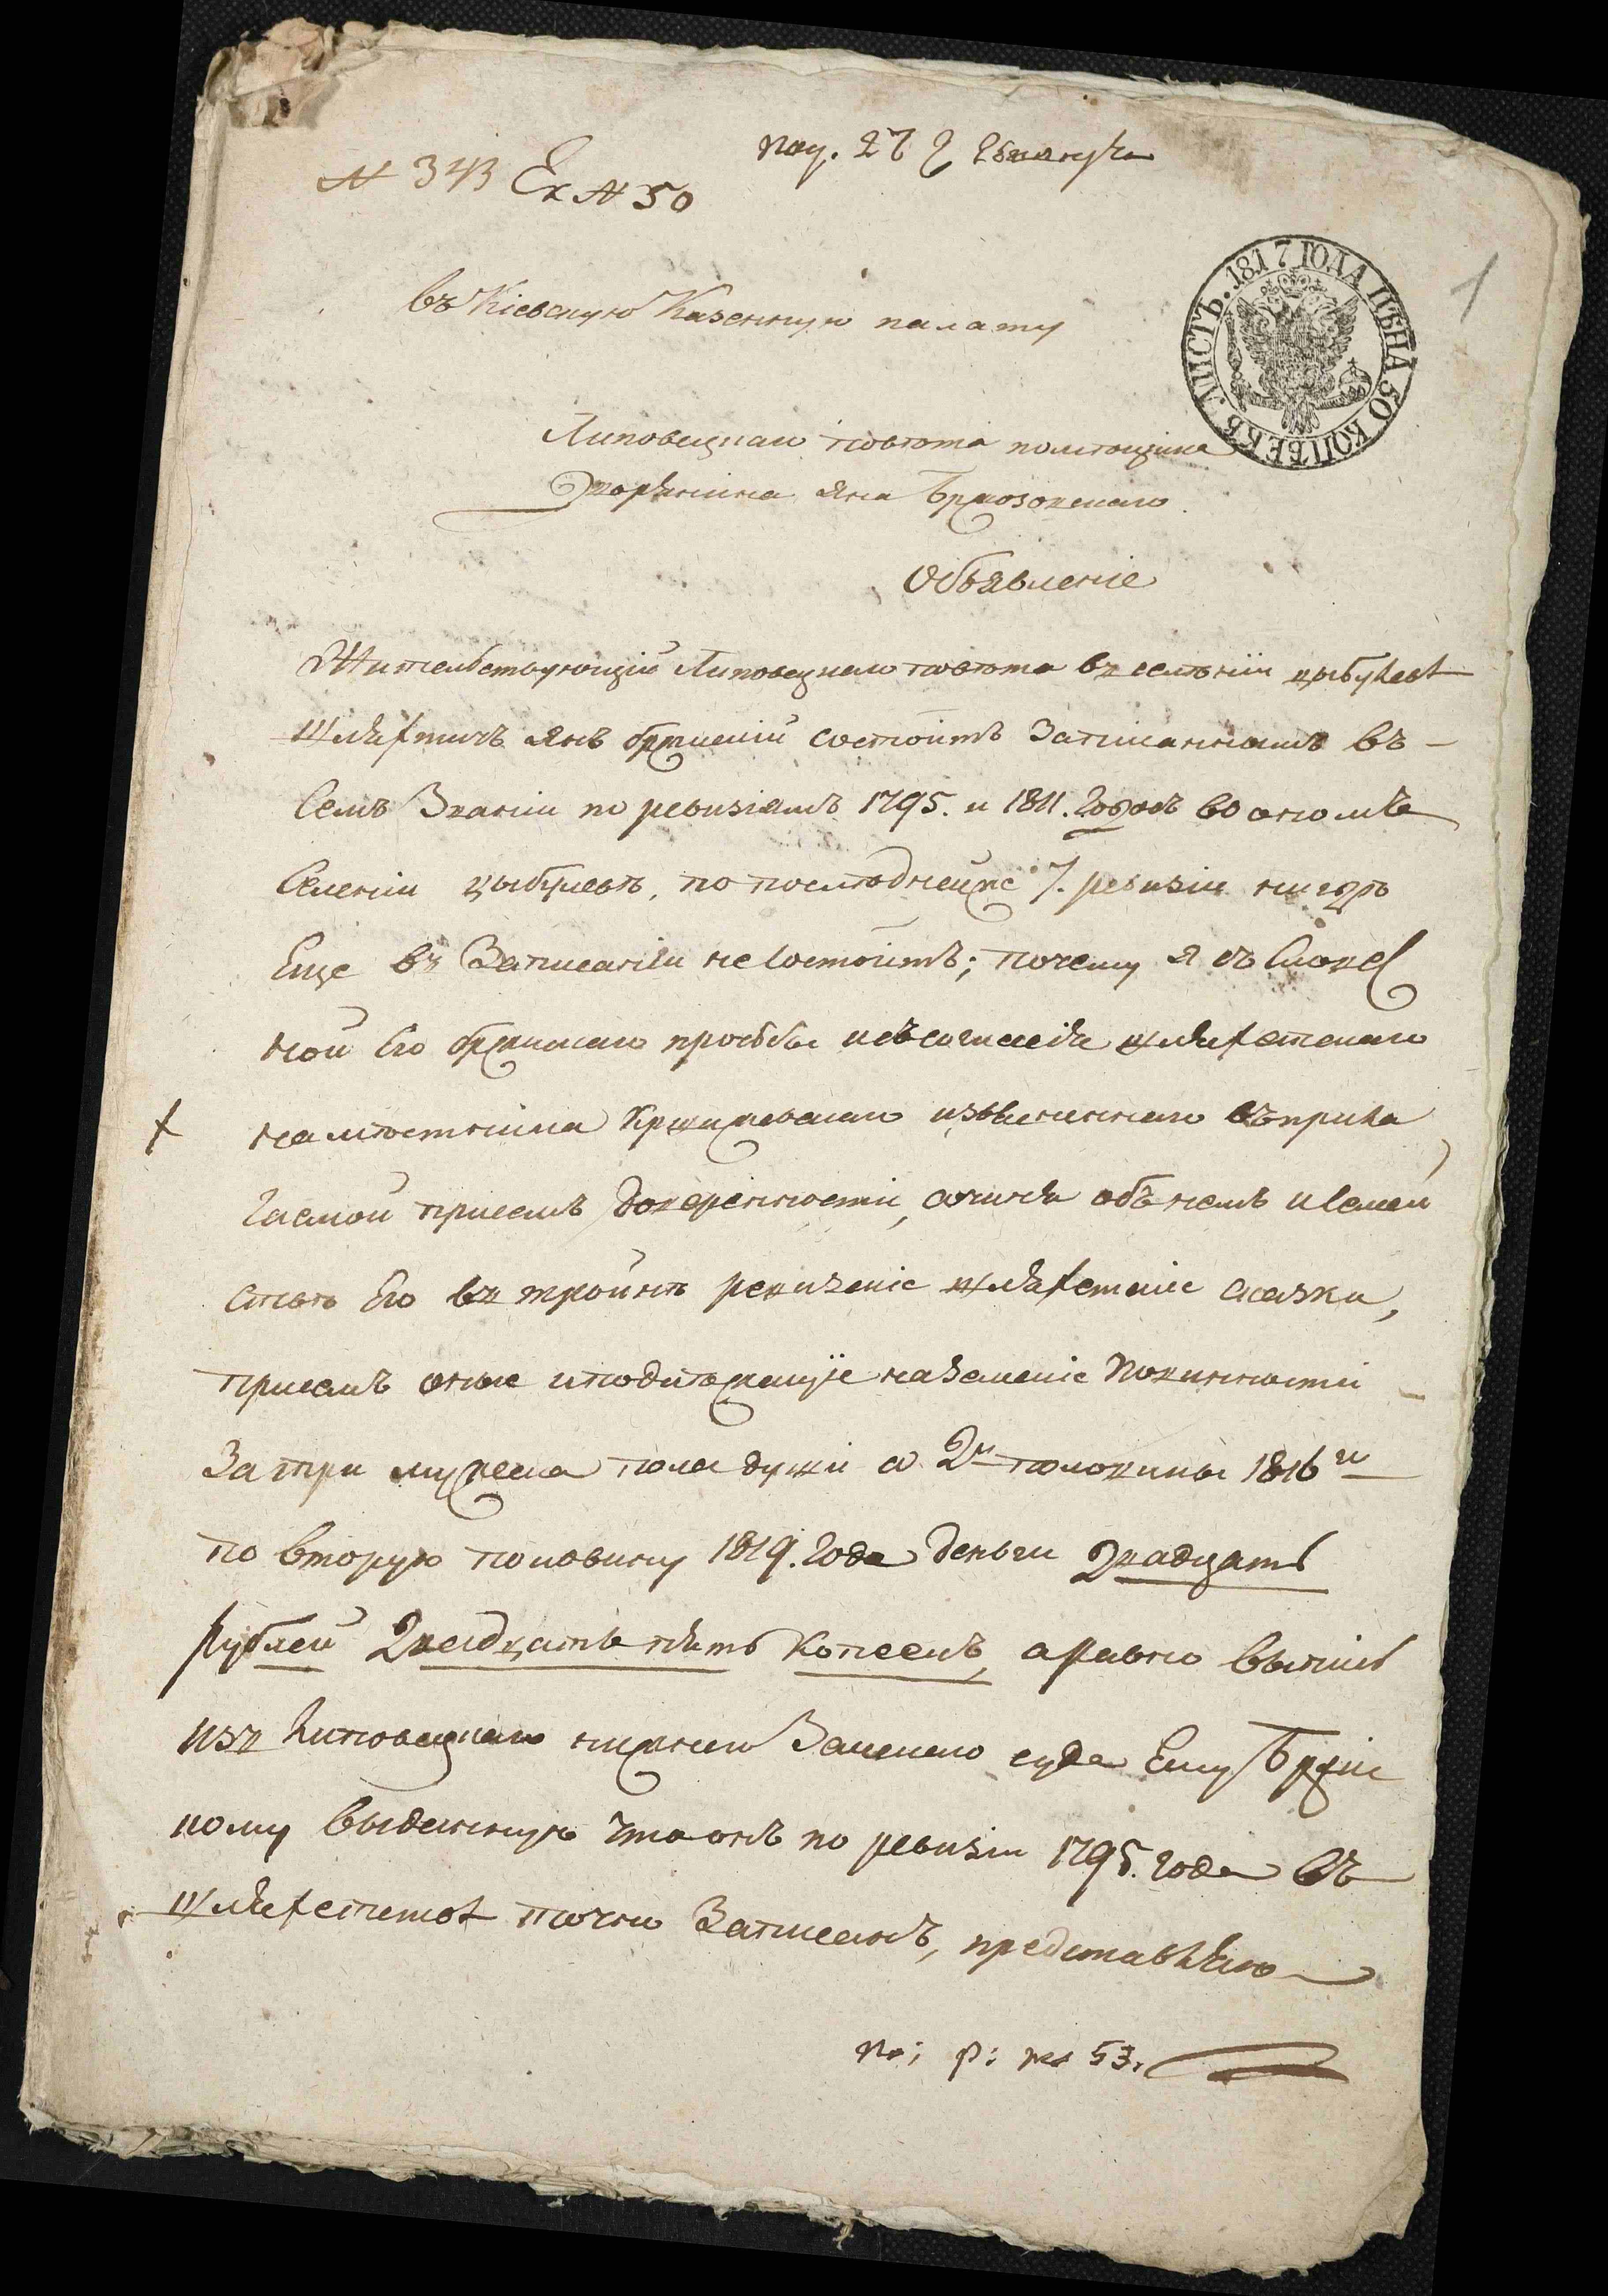 № 343 Ex № 50
1
1817 ГОДА ЦѢНА 50 КОПѢЕКЪ. ЛИСТЪ.
въ Кіевскую Казенную палату
Липовецкаго повѣта помѣщика
Дворянина Яна
Объявленіе
Жительствующій Липовецкаго повѣта въ селѣніи цыбулевѣ
шляхтичъ Янъ состоитъ Записаннымъ въ
Семъ Званіи по ревизіямъ 1795. и 1811. Годовъ во ономъ
Селеніи цыбулевѣ, по послѣднейже 7. ревизіи нигдѣ
Еще въ Записаніи несостоитъ; почему я съ Словес
ной Его прозбы исъсогласія шляхетскаго
намѣстника изъясненнаго въприла
гаемой присемъ довѣренности, объ немъ исемей
ствѣ Его въ тройнѣ ревизскіе шляхетскіе сказки,
присемъ оные иподлѣжащіе наЗемскіе повинности
За три мужеска пола души съ 2й половины 1816 г
по вторую половину 1819. Года деньги Двадцать
рублей Двадцать пять копеекъ, аравно выписъ
изъ Липовецкаго нижнего Земскаго суда Ему
кому выданную что онъ по ревизіи 1795. года въ
шляхетствѣ точно Записанъ, представляю
53.